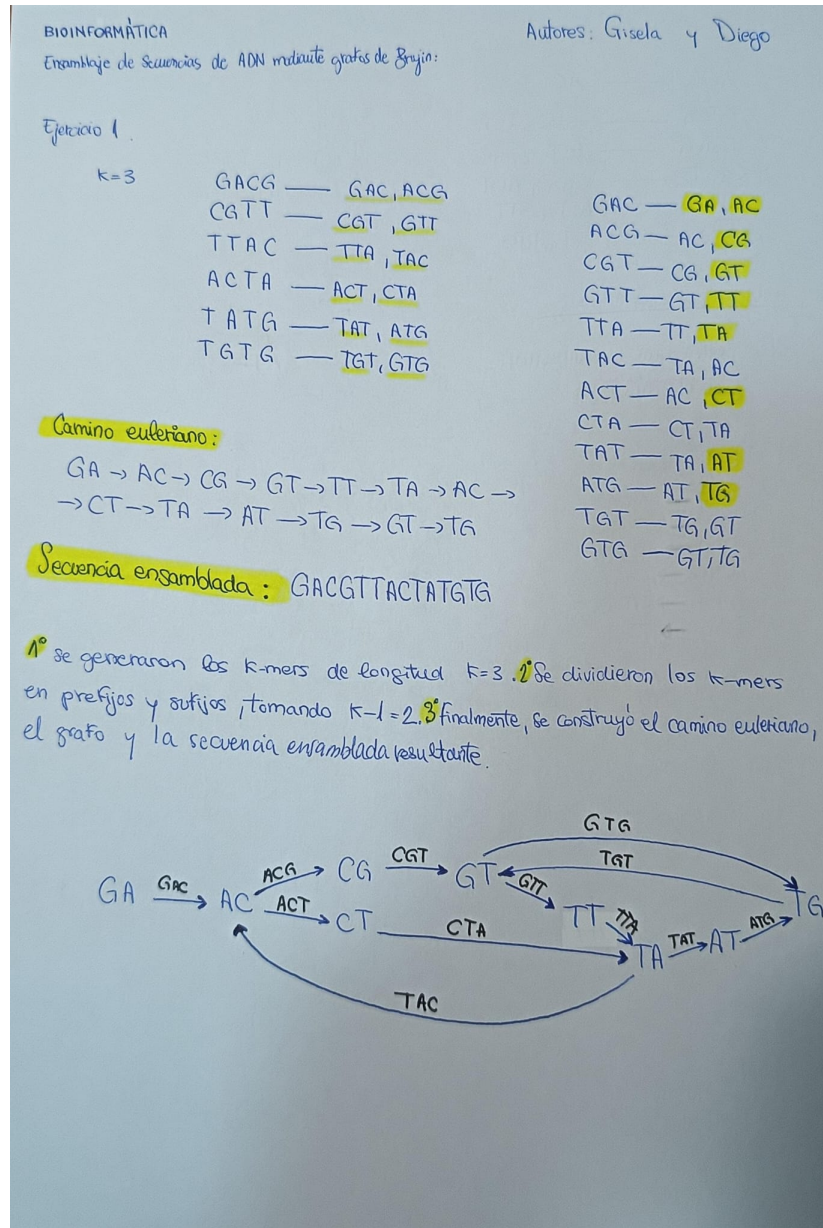 BIOINFORMÁTICA
Autores: Gisela y Diego
Ensamblaje de Secuencias de ADN mediante grafos de Bruijn:
Ejercicio 1.
K=3
GACG — GAC, ACG
CGTT — CGT, GTT
TTAC — TTA, TAC
ACTA — ACT, CTA
TATG — TAT, ATG
TGTG — TGT, GTG
GAC — GA, AC
ACG — AC, CG
CGT — CG, GT
GTT — GT, TT
TTA — TT, TA
TAC — TA, AC
ACT — AC, CT
CTA — CT, TA
TAT — TA, AT
ATG — AT, TG
TGT — TG, GT
GTG — GT, TG
Camino euleriano:
GA → AC → CG → GT → TT → TA → AC →
→ CT → TA → AT → TG → GT → TG
Secuencia ensamblada: GACGTTACTATGTG
1º se generaron los k-mers de longitud k=3. 2º Se dividieron los k-mers
en prefijos y sufijos, tomando k-1=2. 3º finalmente, se construyó el camino euleriano,
el grafo y la secuencia ensamblada resultante.
GTG
TGT
GA GAC AC ACG CG CGT GT GTT TT TTA
ACT CT CTA TA TAT AT ATG TG
TAC